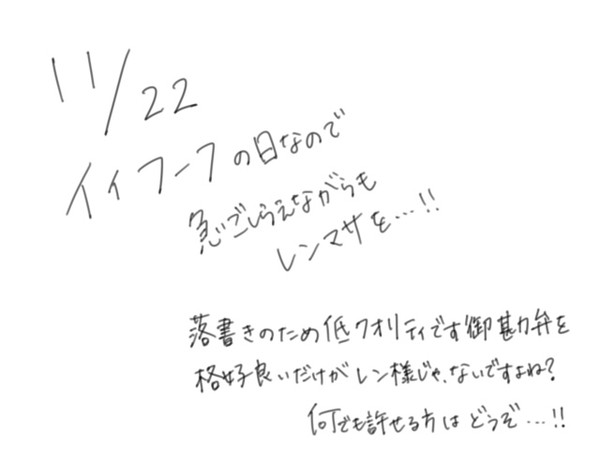 11/22
イイフーフの日なので
急ごしらえながらも
レンマサを…!!
落書きのため低クオリティです御勘弁を
格好良いだけがレン様じゃないですよね?
何でも許せる方はどうぞ…!!